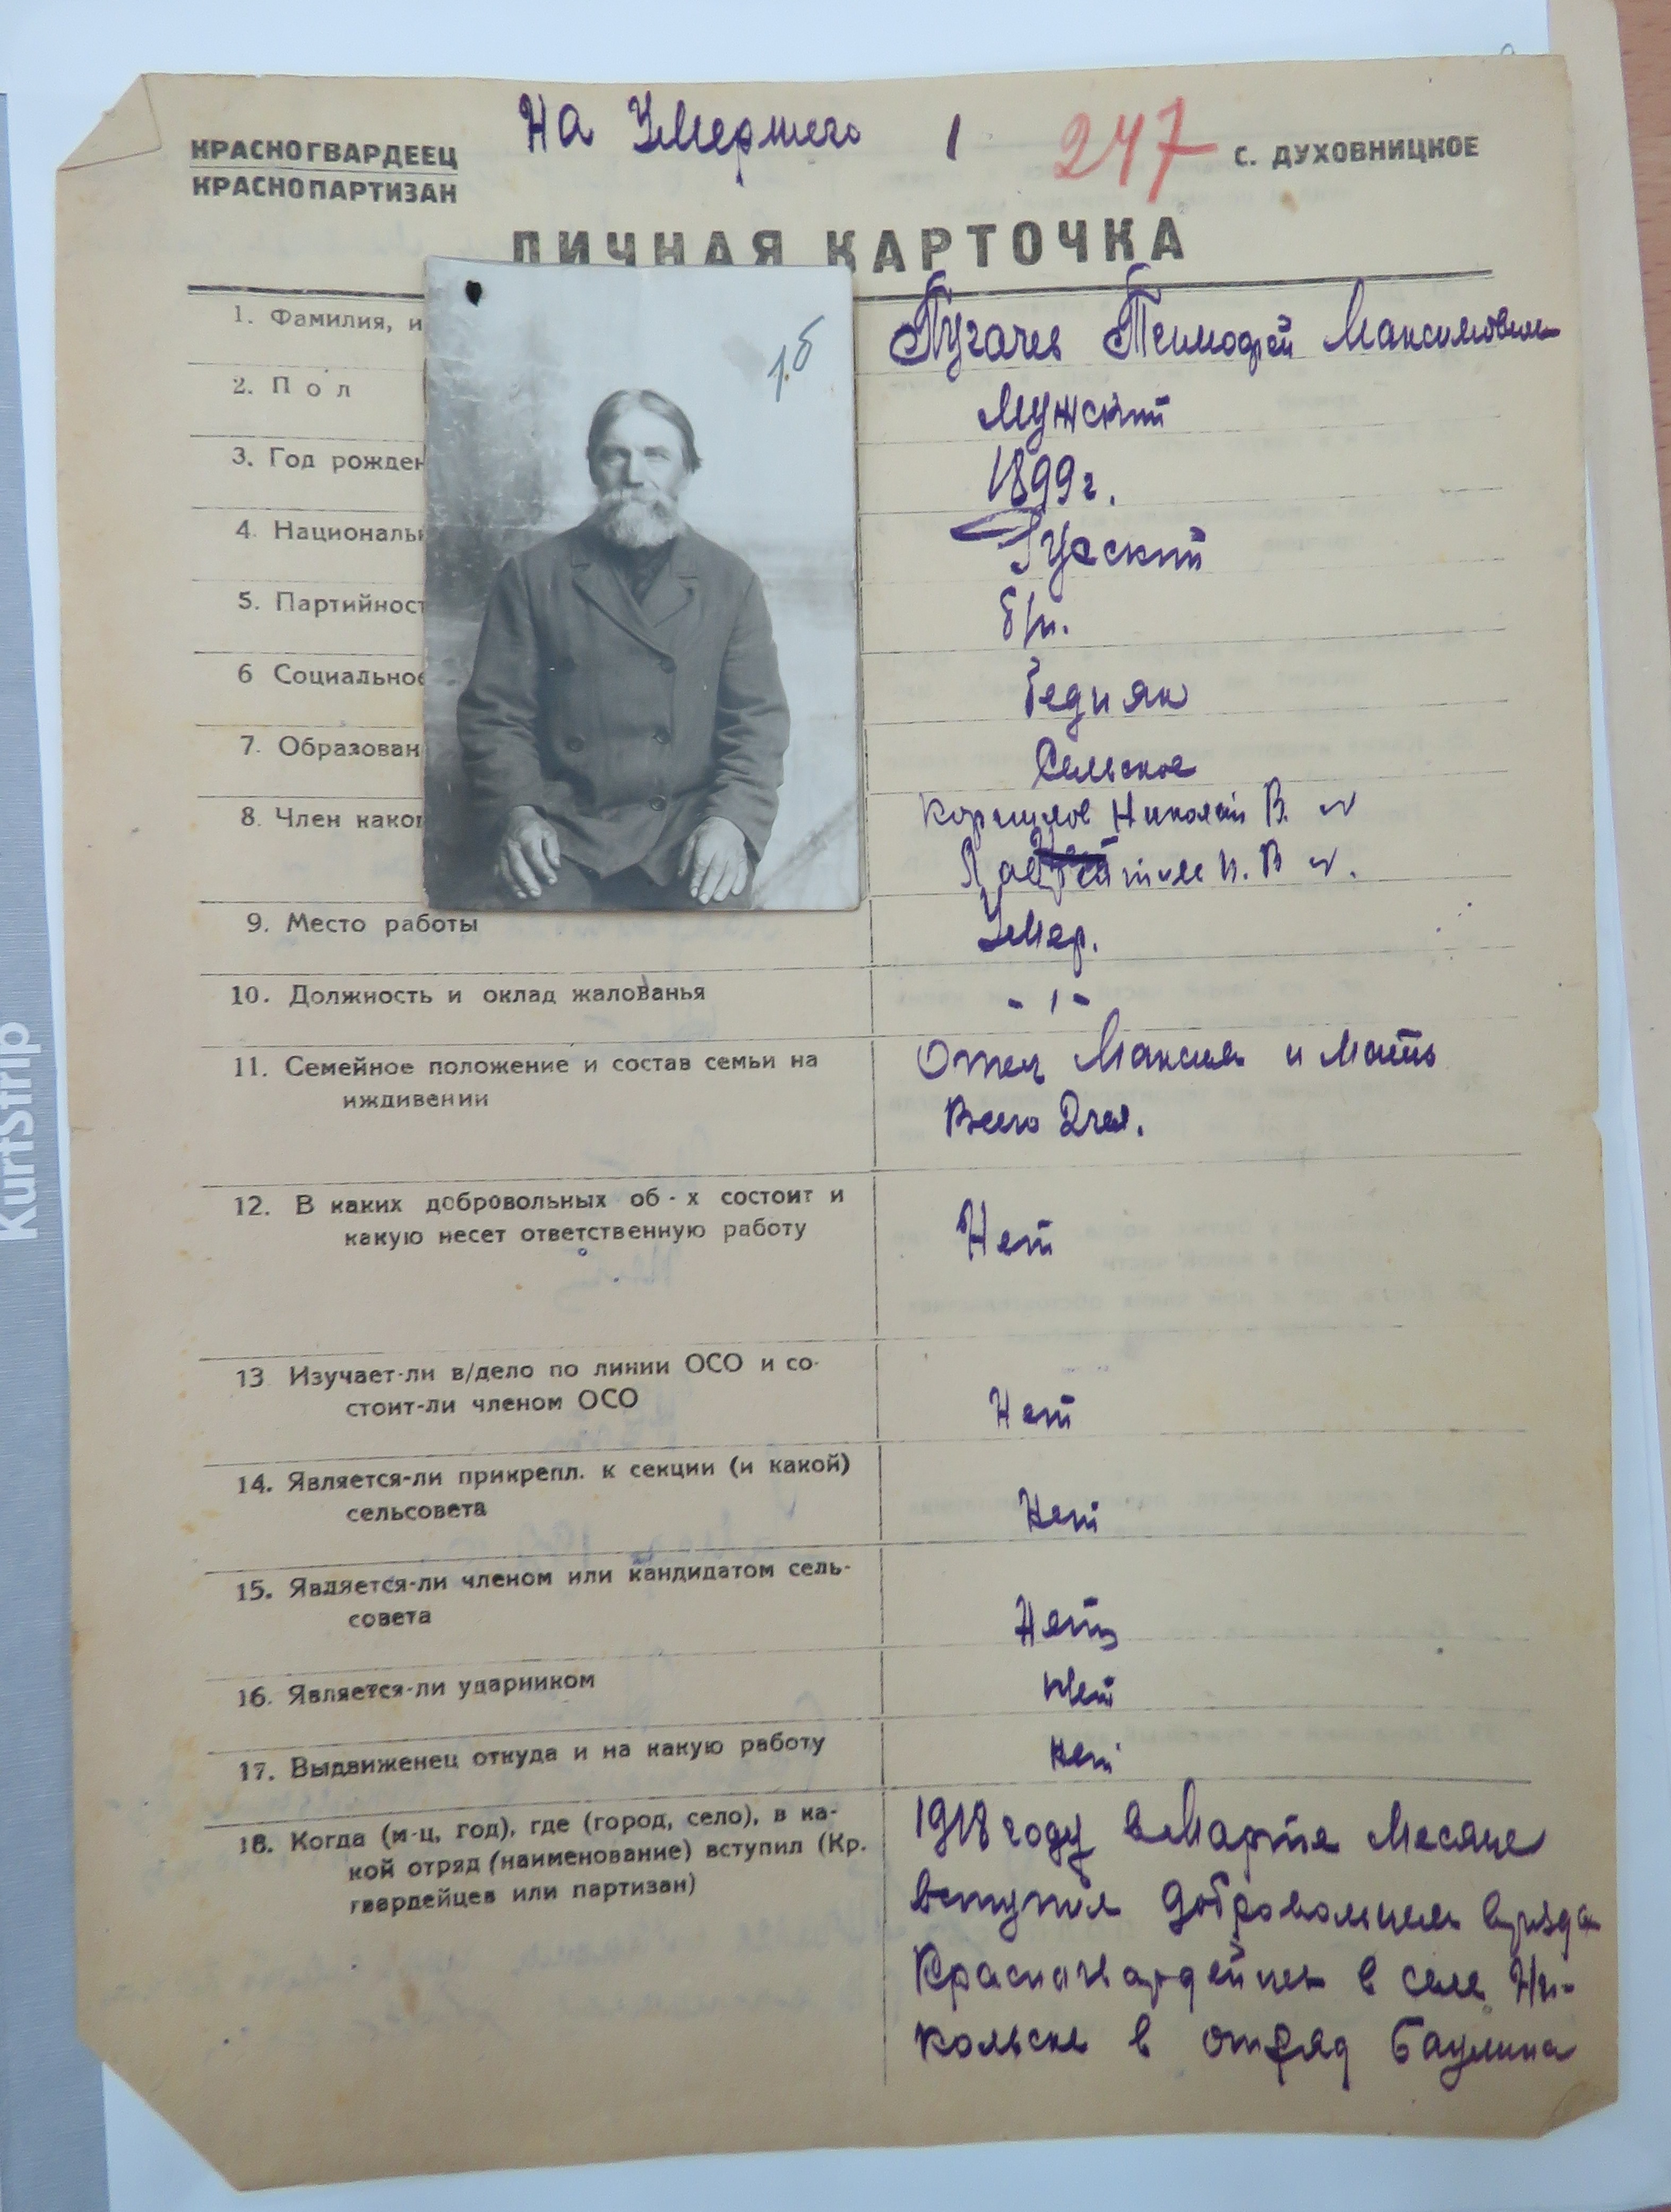 На Умершего 1 247
КРАСНОГВАРДЕЕЦ
КРАСНОПАРТИЗАН
с. ДУХОВНИЦКОЕ
ЛИЧНАЯ КАРТОЧКА
1. Фамилия, и Пугачев Тимофей Максимович
1.б
2. Пол Мужский
3. Год рожден 1899 г.
4. Националь Русский
5. Партийност б/п.
6 Социальное бедняк
7. Образован Сельское
8. Член каког Корнилов Николай В.
9. Место работы Умер.
10. Должность и оклад жалованья - 1 -
11. Семейное положение и состав семьи на Отец Максим и мать
иждивении Всего 2 чел.
12. В каких добровольных об-х состоит и
какую несет ответственную работу Нет
13 Изучает-ли в/дело по линии ОСО и со-
стоит-ли членом ОСО Нет
14. Является-ли прикрепл. к секции (и какой)
сельсовета Нет
15. Является-ли членом или кандидатом сель-
совета Нет
16. Является-ли ударником Нет
17. Выдвиженец откуда и на какую работу нет
18. Когда (м-ц, год), где (город, село), в ка-
кой отряд (наименование) вступил (Кр.
гвардейцев или партизан)
1918 году в Марте Месяце
вступил добровольцем
Красногвардейцев в селе Ни-
кольске в отряд Баулина
KurtStrip